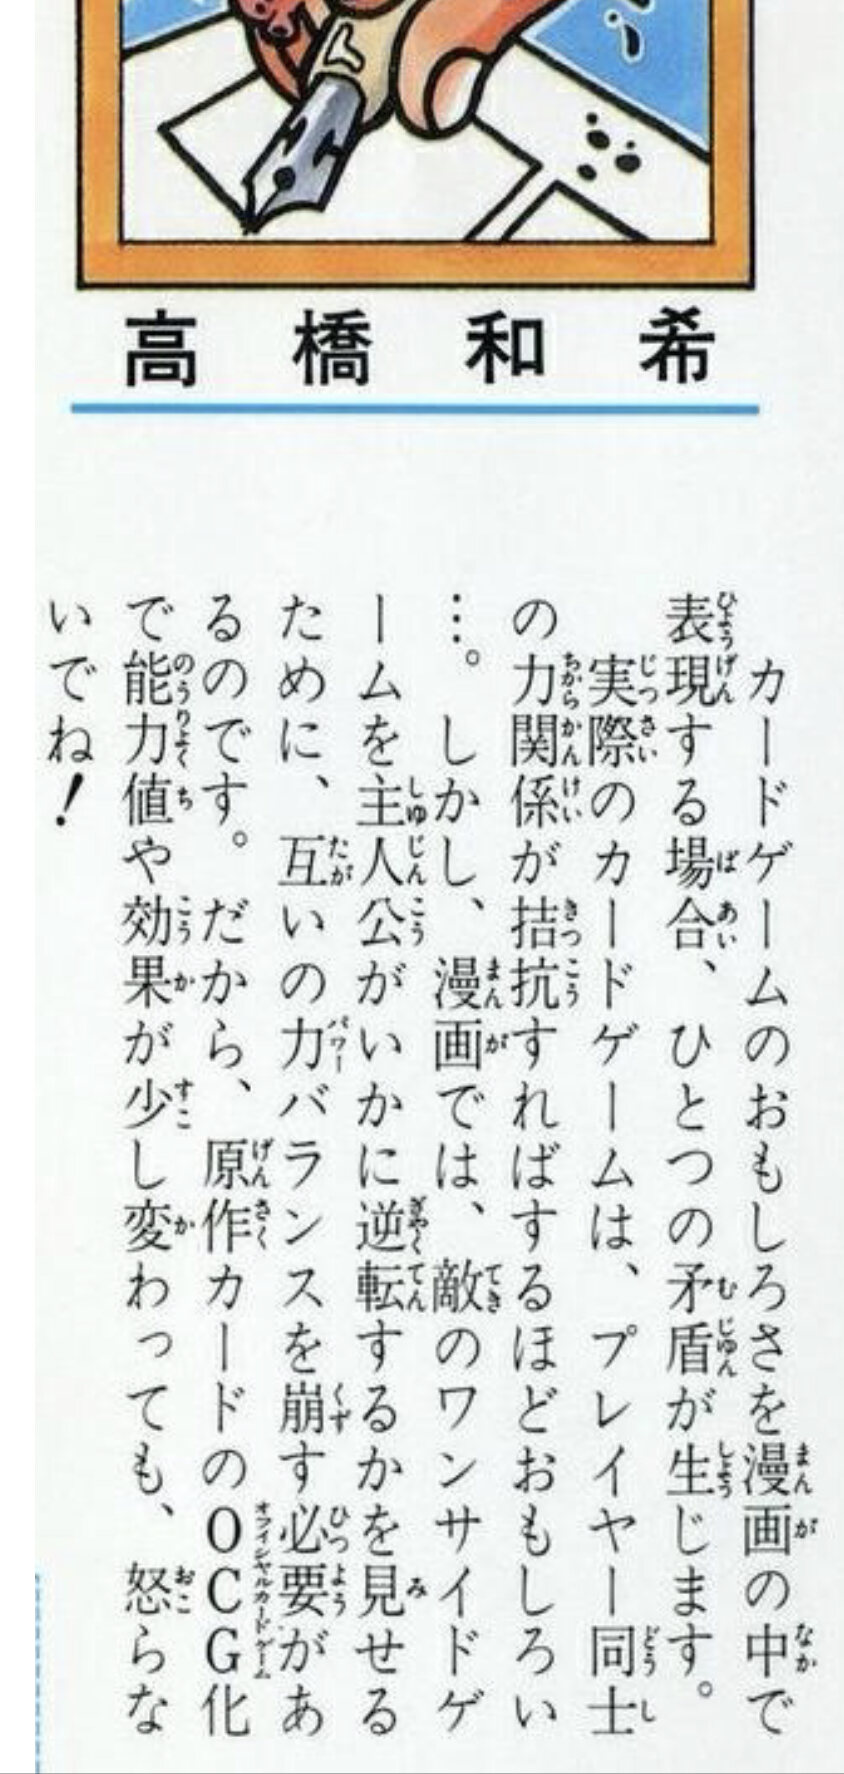 高橋和希
カードゲームのおもしろさを漫画の中で
表現する場合、ひとつの矛盾が生じます。
実際のカードゲームは、プレイヤー同士
の力関係が拮抗すればするほどおもしろい
…。しかし、漫画では、敵のワンサイドゲ
ームを主人公がいかに逆転するかを見せる
ために、互いの力バランスを崩す必要があ
るのです。だから、原作カードのOCG化
で能力値や効果が少し変わっても、怒らな
いでね!